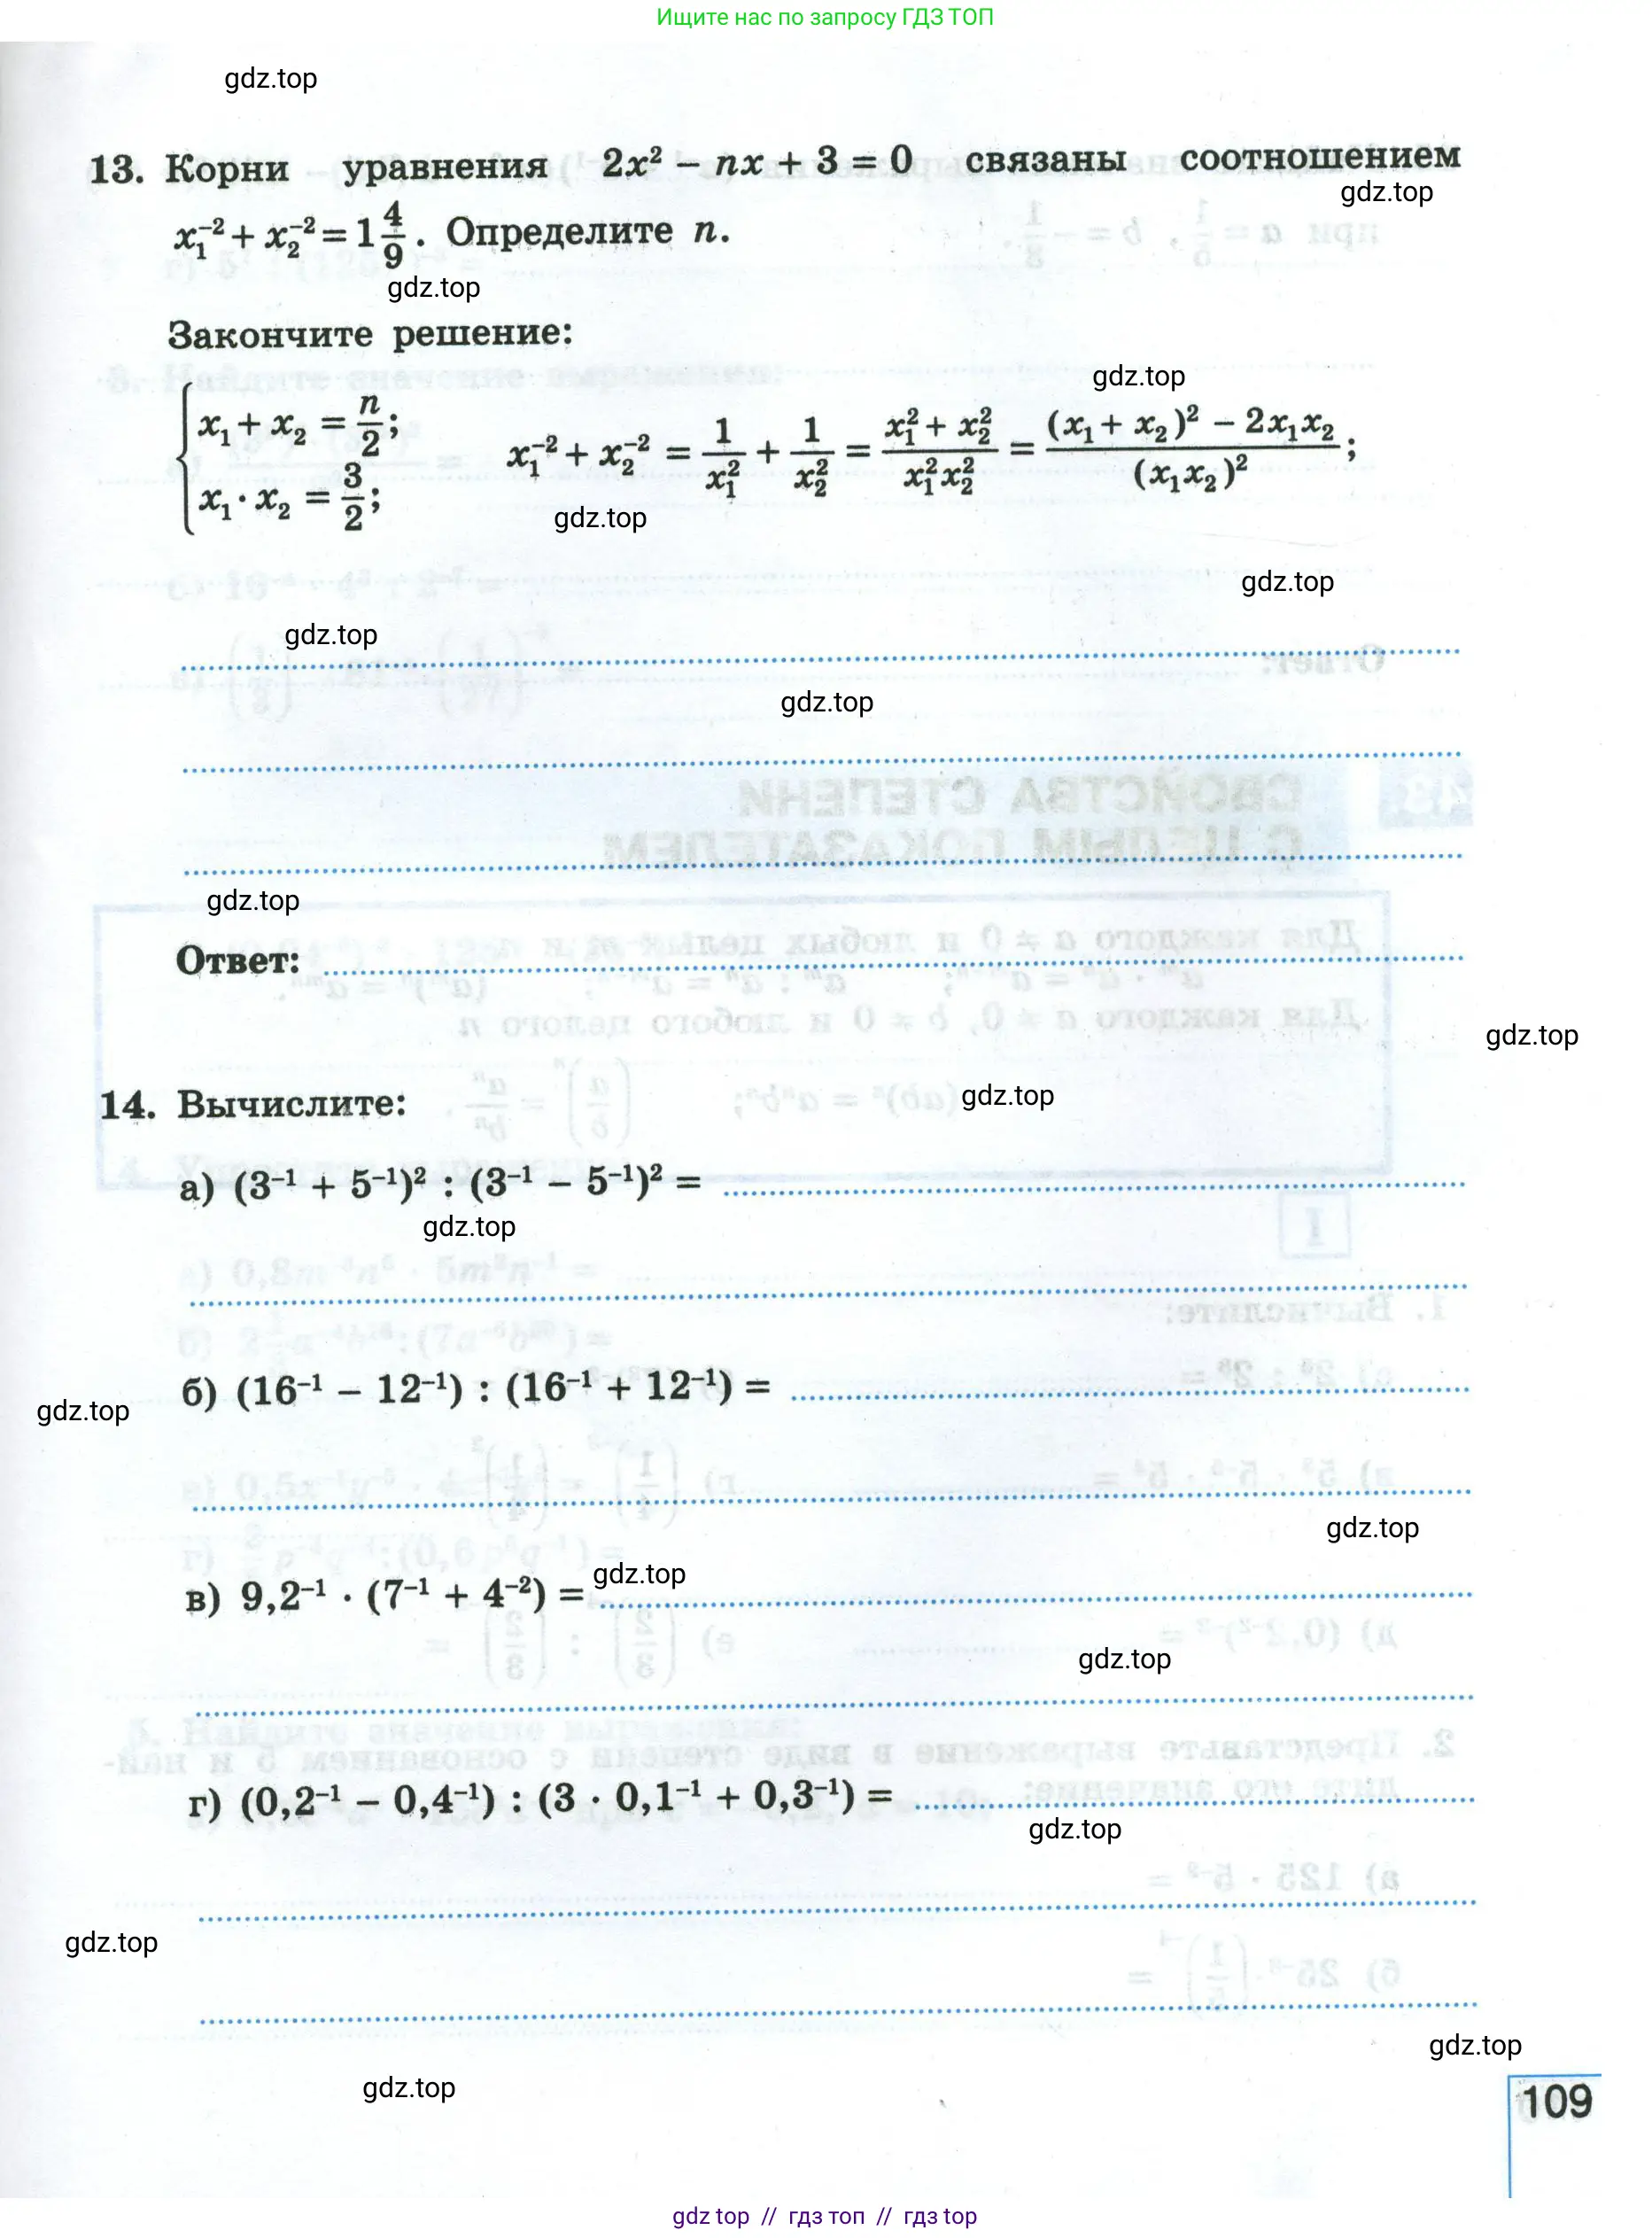 Ищите нас по запросу ГДЗ ТОП
gdz.top
13. Корни уравнения 2x² – nx + 3 = 0 связаны соотношением
gdz.top
x₁⁻² + x₂⁻² = 1 4/9. Определите n.
gdz.top
Закончите решение:
gdz.top
{ x₁ + x₂ = n/2; x₁ · x₂ = 3/2; x₁⁻² + x₂⁻² = 1/x₁² + 1/x₂² = (x₁² + x₂²)/(x₁²x₂²) = ((x₁ + x₂)² – 2x₁x₂)/(x₁x₂)²;
gdz.top
gdz.top
gdz.top
gdz.top
gdz.top
Ответ:
gdz.top
gdz.top
14. Вычислите:
а) (3⁻¹ + 5⁻¹)² : (3⁻¹ – 5⁻¹)² =
gdz.top
б) (16⁻¹ – 12⁻¹) : (16⁻¹ + 12⁻¹) =
gdz.top
gdz.top
в) 9,2⁻¹ · (7⁻¹ + 4⁻²) =
gdz.top
gdz.top
г) (0,2⁻¹ – 0,4⁻¹) : (3 · 0,1⁻¹ + 0,3⁻¹) =
gdz.top
gdz.top
gdz.top
gdz.top
109
gdz top // гдз топ // гдз top